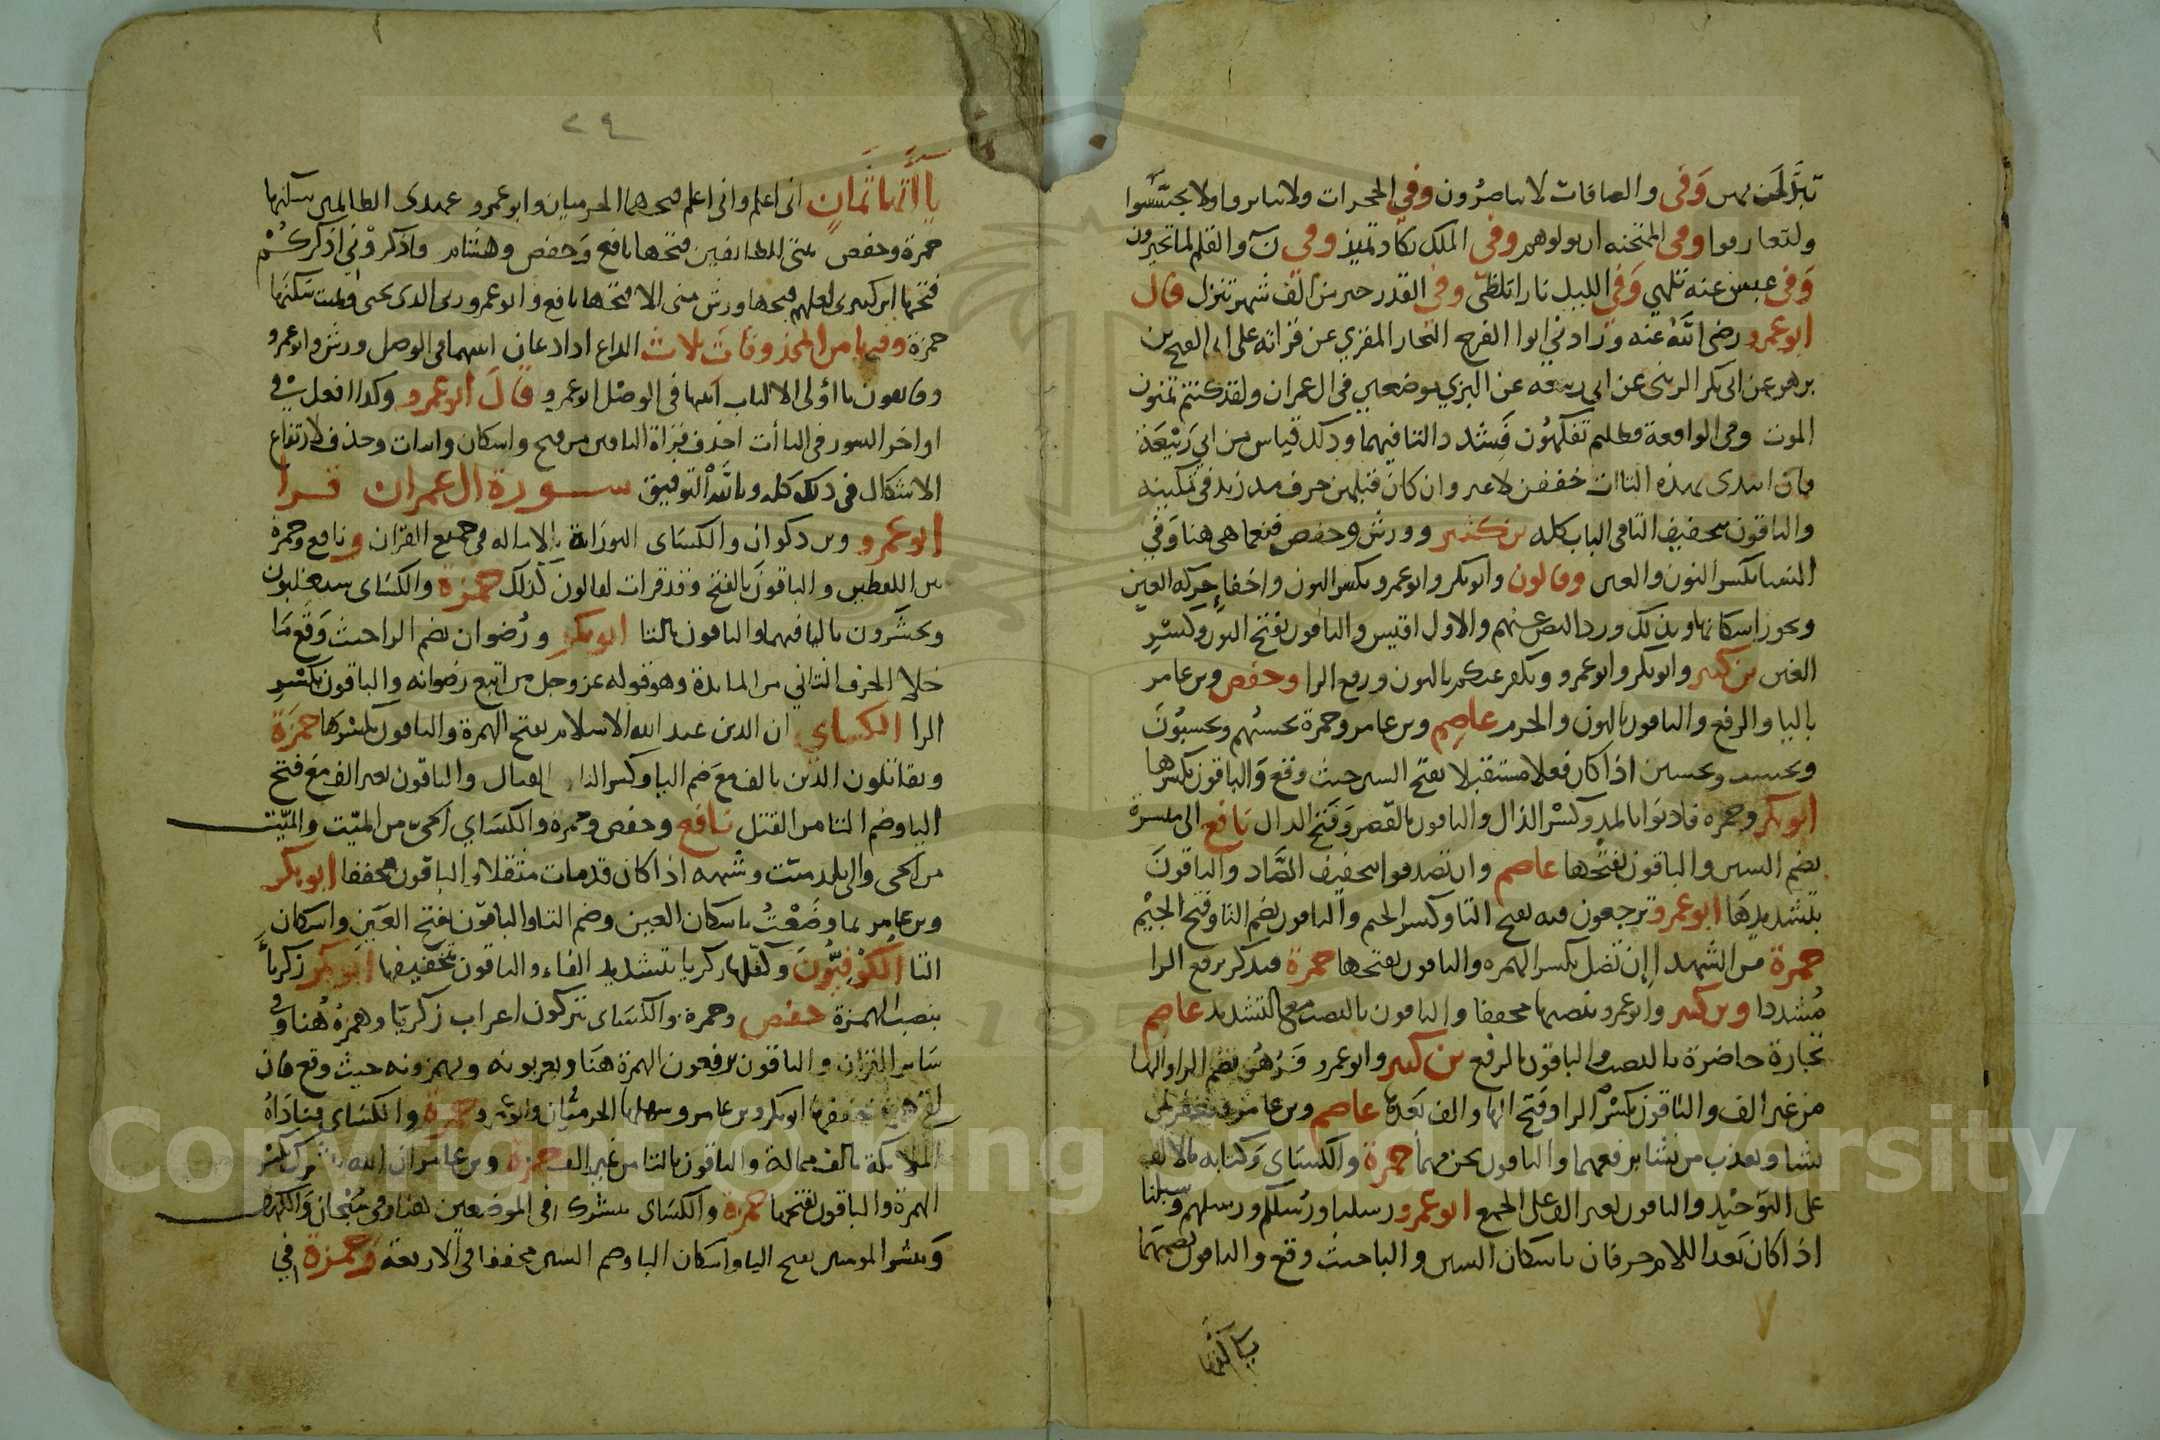 تبدل بهن وفى والصافات لا تناصرون وفي الحجرات ولا تنابزوا ولا تجسسوا
ولتعارفوا وفى الممتحنه ان تولوهم وفى الملك تكاد تميز وفى ن والقلم لما تخيرون
وفى عبس عنه تلهي وفى الليل نارا تلظى وفى القدر خير من الف شهر تنزل قال
ابو عمرو رضى الله عنه وزادني ابوا الفرج النجار المقري عن قراته على ابى الفتح بن
بدهن عن ابى بكر الزينى عن ابى ربيعه عن البزي موضعين فى ال عمران ولقد كنتم تمنون
الموت وفى الواقعة فظلتم تفكهون فشدد التا فيهما وذلك قياس من ابي ربيعة
فان ابتدى بهذه التاات خففن لا غير وان كان قبلهن حرف مد زيد في تمكينه
والباقون بتخفيف التا فى الباب كله بن كثير وورش وحفص فنعما هى هنا وفي
النسا بكسر النون والعين وقالون وابو بكر وابو عمرو بكسر النون واخفا حركه العين
ويجوز اسكانها وبذلك ورد النص عنهم والاول اقيس والباقون بفتح النون وكسر
العين بن كثير وابو بكر وابو عمرو ونكفر عنكم بالنون ورفع الرا وحفص وبن عامر
باليا والرفع والباقون بالنون والجزم عاصم وبن عامر وحمزة يحسبهم ويحسبون
وتحسب وتحسبن اذا كان فعلا مستقبلا بفتح السين حيث وقع والباقون بكسرها
ابو بكر وحمزه فاذنوا بالمد وكسر الذال والباقون بالقصر وفتح الذال نافع الى ميسرة
بضم السين والباقون بفتحها عاصم وان تصدقوا بتخفيف الصاد والباقون
بتشديدها ابو عمرو ترجعون فيه بفتح التا وكسر الجيم والباقون بضم التا وفتح الجيم
حمزة من الشهدا إن تضل بكسر الهمزه والباقون بفتحها حمزة فتذكر برفع الرا
مشددا وبن كثير وابو عمرو بنصبها مخففا والباقون بالنصب مع التشديد عاصم
تجارة حاضرة بالنصب والباقون بالرفع بن كثير وابو عمرو فرهن بضم الرا والها
من غير الف والباقون بكسر الرا وفتح الها والف بعدها عاصم وبن عامر فيغفر لمن
يشا ويعذب من يشا برفعهما والباقون بجزمهما حمزة والكسائى وكتابه بالالف
على التوحيد والباقون بغير الف على الجمع ابو عمرو رسلنا ورسلكم ورسلهم وسبلنا
اذا كان بعد اللام حرفان باسكان السين والبا حيث وقع والباقون بضمهما
ياآتها
٢٩
ياآتها ثمان انى اعلم وانى اعلم فتحهما الحرميان وابو عمرو عهدى الظالمين سكنها
حمزة وحفص بيتى للطايفين فتحها نافع وحفص وهشام فاذكروني اذكركم
فتحها ابن كثير بى لعلهم فتحها ورش منى الا فتحها نافع وابو عمرو ربى الذى يحيى ويميت سكنها
حمزة وفيها من المحذوفات ثلاث الداع اذا دعان اثبتهما فى الوصل ورش وابو عمرو
واتقون يا أولى الالباب اثبتها فى الوصل ابو عمرو قال ابو عمرو وكذا افعل في
اواخر السور فى الياأت احذف قراة الباقين من فتح واسكان واثبات وحذف لارتفاع
الاشكال فى ذلك كله وبالله التوفيق سورة ال عمران قرا
ابو عمرو وبن ذكوان والكسائى التوراة بالاماله فى جميع القران ونافع وحمزة
بين اللفظين والباقون بالفتح وقد قرات لقالون كذلك حمزة والكسائى سيغلبون
ويحشرون باليا فيهما والباقون بالتا ابو بكر ورضوان بضم الرا حيث وقع ما
خلا الحرف الثاني من المايدة وهو قوله عز وجل من اتبع رضوانه والباقون بكسر
الرا الكسائي ان الدين عند الله الاسلام بفتح الهمزة والباقون بكسرها حمزة
ويقاتلون الذين بالف مع ضم اليا وكسر التا من القتال والباقون بغير الف مع فتح
اليا وضم التا من القتل نافع وحفص وحمزه والكسائي الحى من الميت والميت
من الحى والى بلد ميت وشبهه اذا كان قد مات مثقلا والباقون مخففا ابو بكر
وبن عامر بما وضعت باسكان العين وضم التا والباقون بفتح العين واسكان
التا الكوفيون وكفلها زكريا بتشديد الفاء والباقون بتخفيفها ابو بكر زكريآ
بنصب الهمزة حفص وحمزة والكسائى يتركون اعراب زكريا وهمزه هنا وفي
ساير القران والباقون يرفعون الهمزة هنا ويعربونه ويهمزونه حيث وقع فان
لقيتها همزة حققها ابو بكر وبن عامر وسهلها الحرميان وابو عمرو حمزة والكسائى فناداه
الملائكة بالف ممالة والباقون بالتا من غير الف حمزة وبن عامر ان الله يبشرك بكسر
الهمزة والباقون بفتحها حمزة والكسائى يبشرك فى الموضعين هنا وفى سبحان والكهف
ويبشر المومنين بفتح اليا واسكان البا وضم الشين مخففا فى الاربعة وحمزة في
Copyright © King Saud University